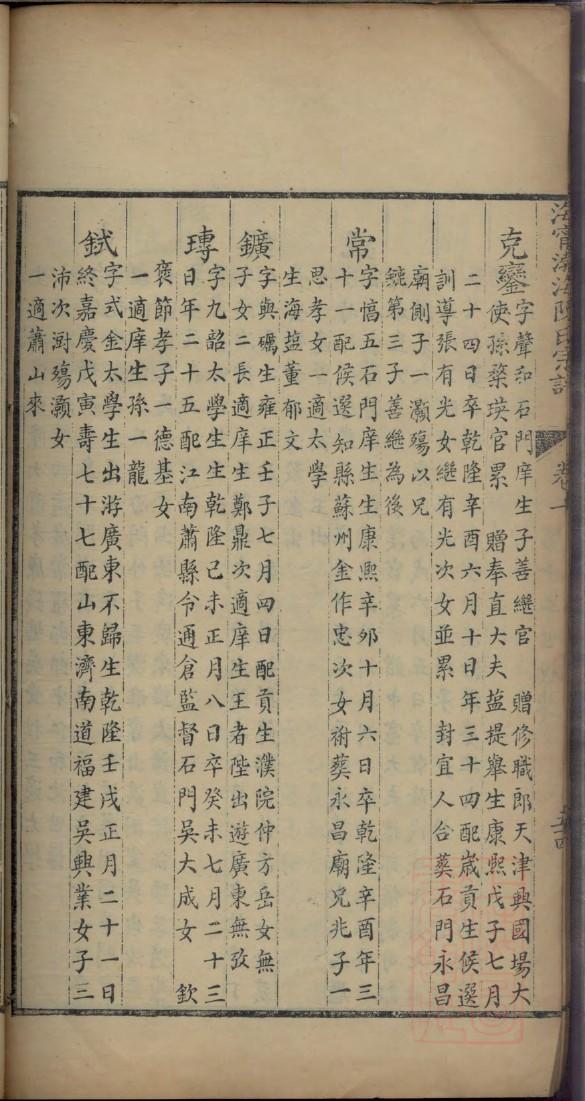 海甯渤海陳氏宗譜
卷十
五十四
克鑾 字聲和石門庠生子善繼官 贈修職郎天津興國場大
使孫棨瑛官累 贈奉直大夫盐提舉生康熙戊子七月
二十四日卒乾隆辛酉六月十日年三十四配嵗貢生候選
訓導張有光女繼有光次女並累 封宜人合葬石門永昌
廟側子一灝殤以兄
鯱第三子善繼為後
常 字愭五石門庠生生康熙辛夘十月六日卒乾隆辛酉年三
十一配候選 知縣蘇州金作忠次女祔葬永昌廟兄兆子一
思孝女一適太學
生海盐董郁文
鑛 字與礪生雍正壬子七月四日配貢生濮院仲方岳女無
子女二長適庠生鄭鼎次適庠生王者陛出遊廣東無攷
瑼 字九韶太學生生乾隆己未正月八日卒癸未七月二十三
日年二十五配江南蕭縣令通倉監督石門吴大成女 欽
褒節孝子一德基女
一適庠生孫一龍
鉽 字式金太學生出游廣東不歸生乾隆壬戌正月二十一日
終嘉慶戊寅壽七十七配山東濟南道福建吴興業女子三
沛次澍殤灝女
一適蕭山來